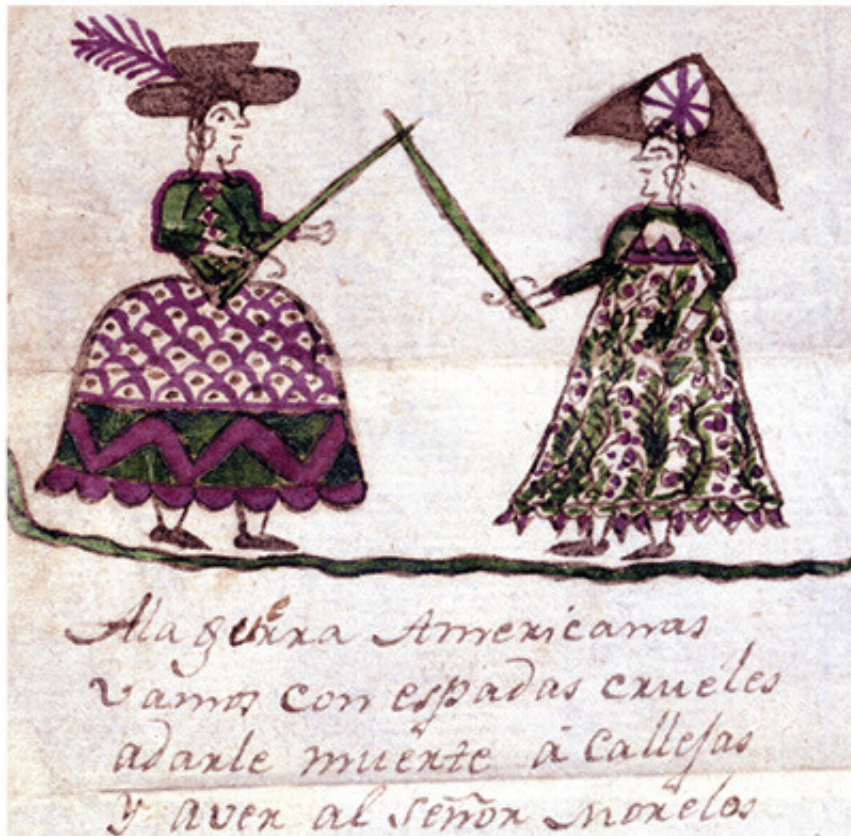 A la guerra Americanas
vamos con espadas crueles
a darle muerte á Callejas
Y a ver al señor Morelos